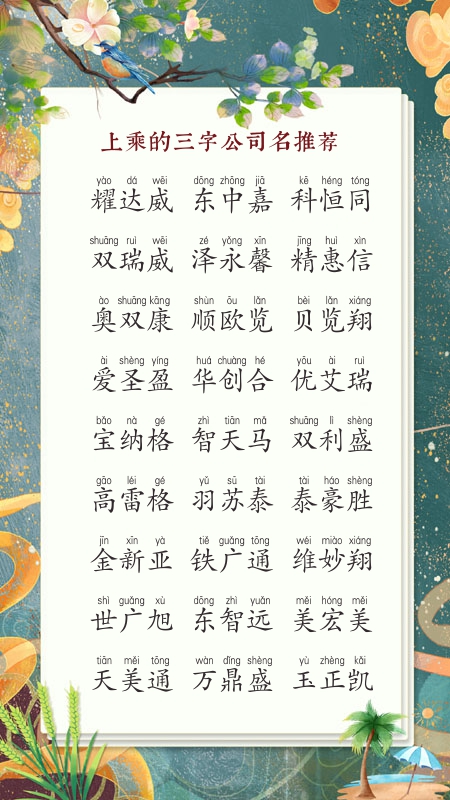 上乘的三字公司名推荐
yào dá wēi dōng zhōng jiā kē héng tóng
耀达威 东中嘉 科恒同
shuāng ruì wēi zé yǒng xīn jīng huì xìn
双瑞威 泽永馨 精惠信
ào shuāng kāng shùn ōu lǎn bèi lǎn xiáng
奥双康 顺欧览 贝览翔
ài shèng yíng huá chuàng hé yōu ài ruì
爱圣盈 华创合 优艾瑞
bǎo nà gé zhì tiān mǎ shuāng lì shèng
宝纳格 智天马 双利盛
gāo léi gé yǔ sū tài tài háo shèng
高雷格 羽苏泰 泰豪胜
jīn xīn yà tiě guǎng tōng wéi miào xiáng
金新亚 铁广通 维妙翔
shì guǎng xù dōng zhì yuǎn měi hóng měi
世广旭 东智远 美宏美
tiān měi tōng wàn dǐng shèng yù zhèng kǎi
天美通 万鼎盛 玉正凯